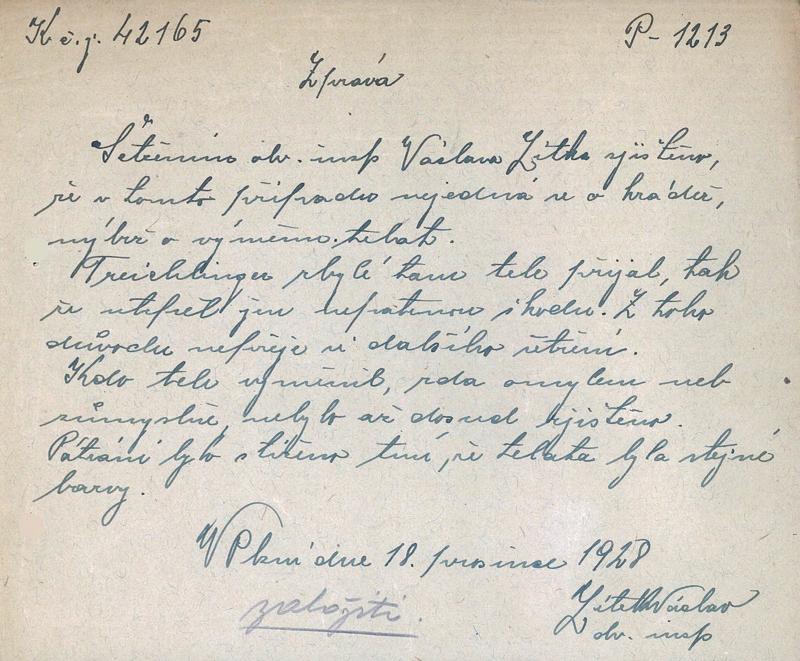 K č.j. 42165 P- 1213
Zpráva
Šetřením obv. insp Václava Zítka zjištěno,
že v tomto případu nejedná se o krádež,
nýbrž o výměnu telat.
Treichlinger zbylé tam tele přijal, tak
že utrpěl jen nepatrnou škodu. Z toho
důvodu nepřeje si dalšího šetření.
Kdo tele vyměnil, zda omylem neb
zúmyslně, nebylo až dosud zjištěno.
Pátrání bylo stíženo tím, že telata byla stejné
barvy.
V Plzni dne 18. prosince 1928
založiti.
Zítek Václav
obv. insp